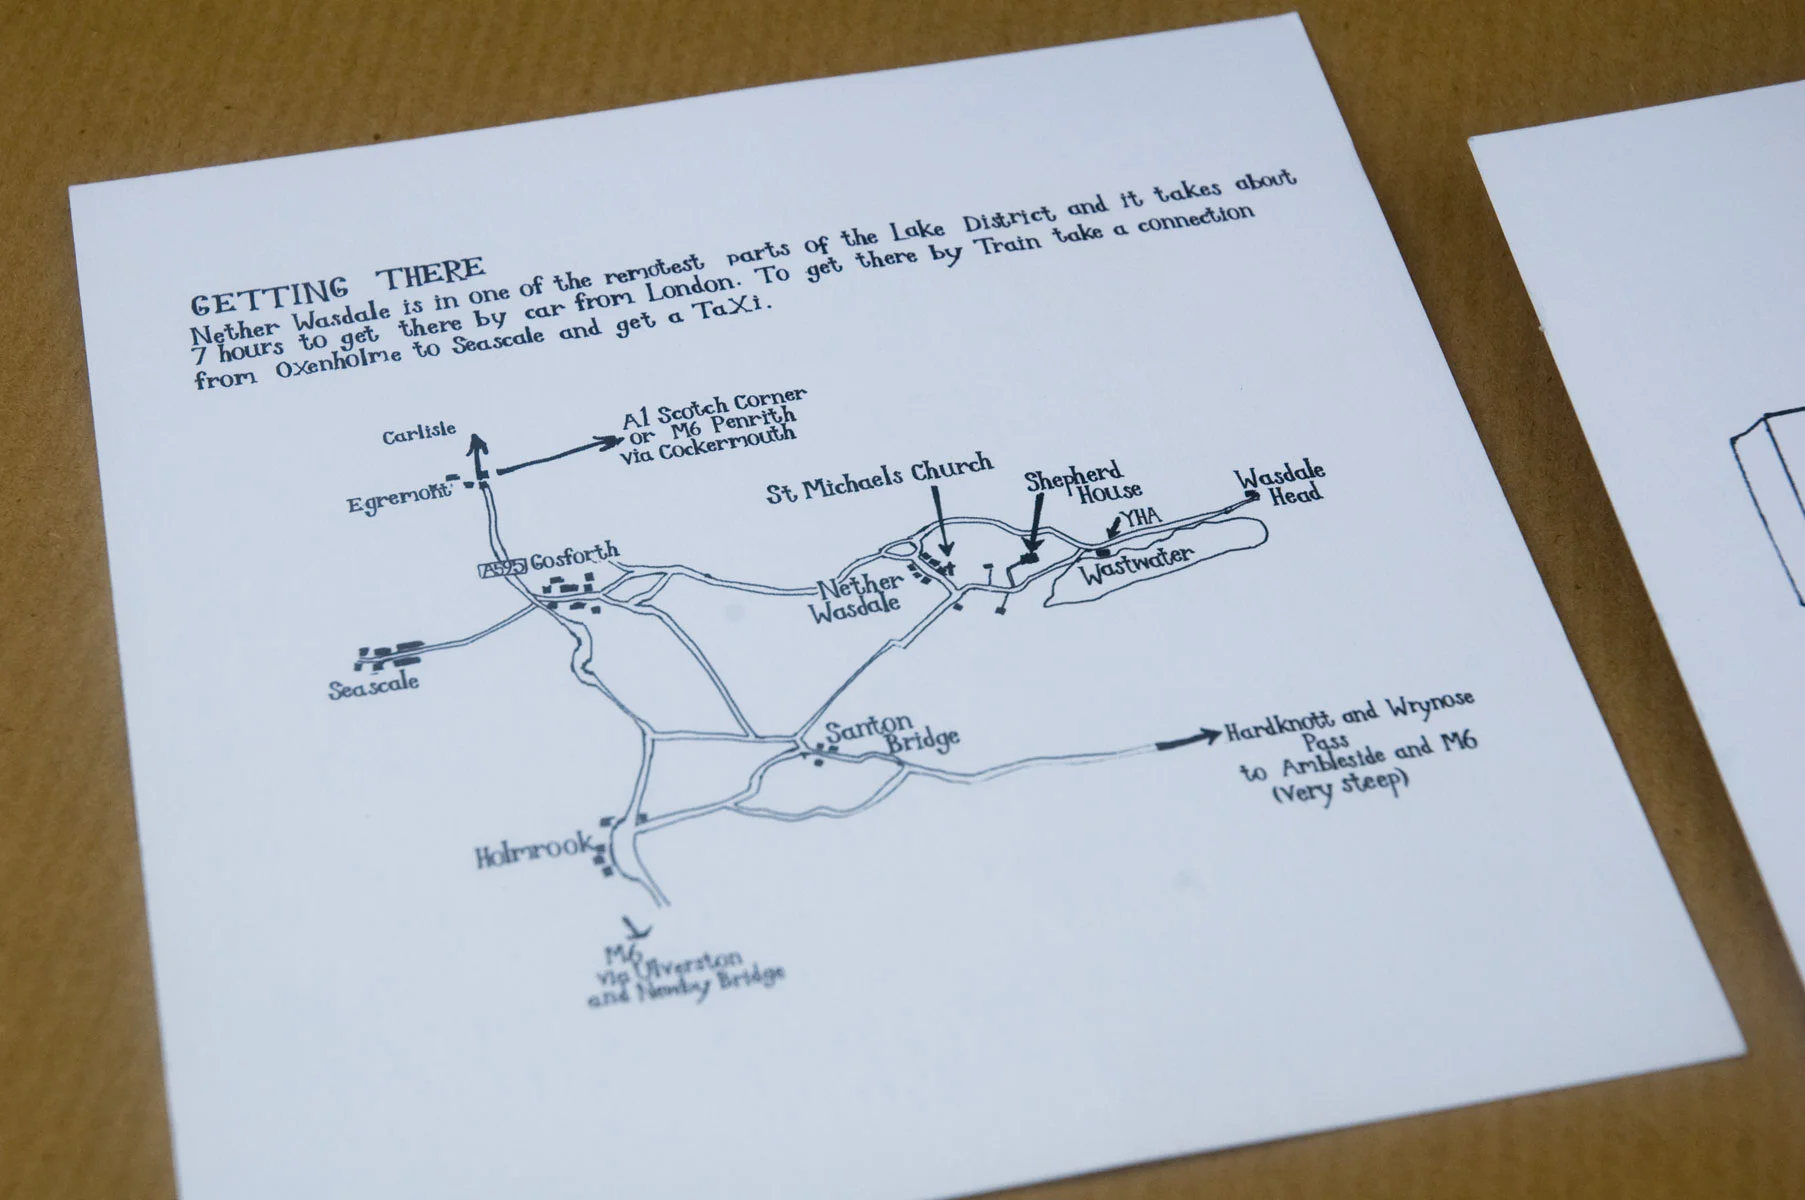 GETTING THERE
Nether Wasdale is in one of the remotest parts of the Lake District and it takes about
7 hours to get there by car from London. To get there by Train take a connection
from Oxenholme to Seascale and get a TaXi.
Carlisle
A1 Scotch Corner
or M6 Penrith
via Cockermouth
Egremont
St Michaels Church
Shepherd
House
Wasdale
Head
YHA
A595
Gosforth
Wastwater
Nether
Wasdale
Seascale
Santon
Bridge
Hardknott and Wrynose
Pass
to Ambleside and M6
(very steep)
Holmrook
M6
via Ulverston
and Newby Bridge